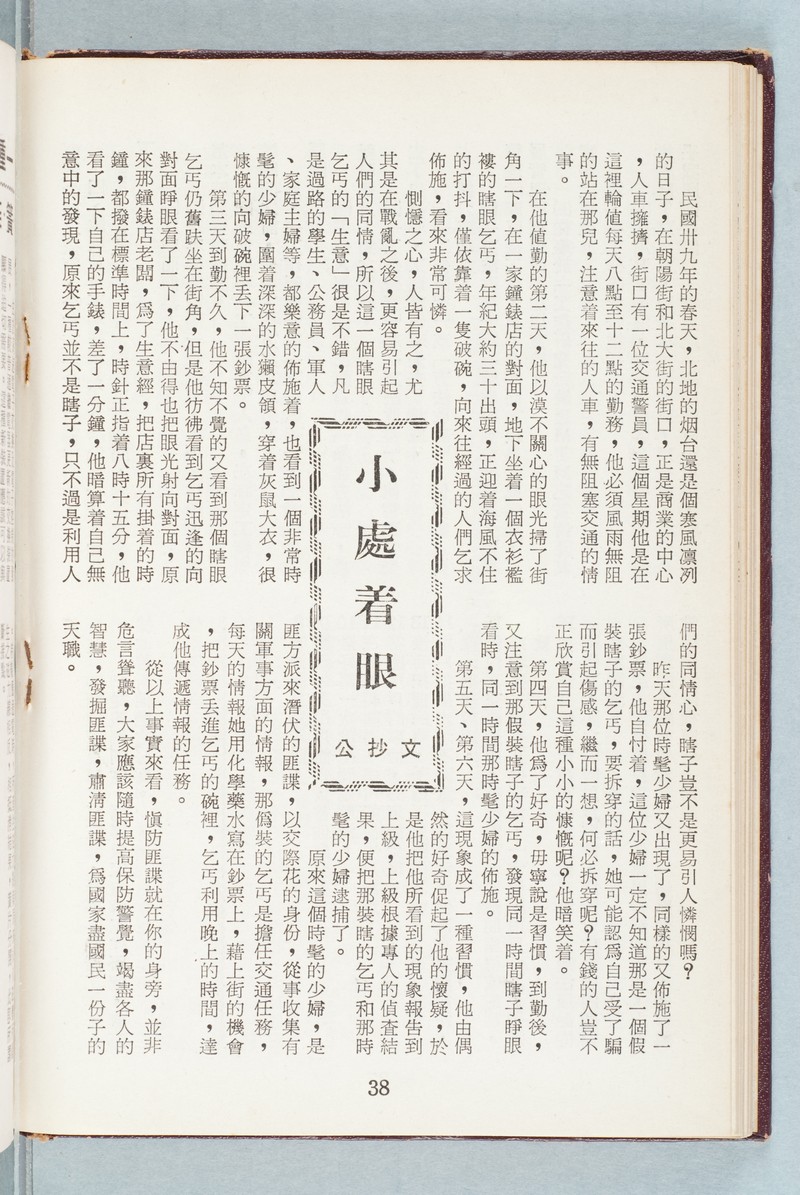 小處着眼
文抄公
民國卅九年的春天，北地的烟台還是個寒風凛冽
的日子，在朝陽街和北大街的街口，正是商業的中心
，人車擁擠，街口有一位交通警員，這個星期他是在
這裡輪值每天八點至十二點的勤務，他必須風雨無阻
的站在那兒，注意着來往的人車，有無阻塞交通的情
事。
在他値勤的第二天，他以漠不關心的眼光掃了街
角一下，在一家鐘錶店的對面，地下坐着一個衣衫襤
褸的瞎眼乞丐，年紀大約三十出頭，正迎着海風不住
的打抖，僅依靠着一隻破碗，向來往經過的人們乞求
佈施，看來非常可憐。
惻憶之心，人皆有之，尤
其是在戰亂之後，更容易引起
人們的同情，所以這一個瞎眼
乞丐的「生意」很是不錯，凡
是過路的學生、公務員、軍人
、家庭主婦等，都樂意的佈施着，也看到一個非常時
髦的少婦，圍着深深的水獺皮領，穿着灰鼠大衣，很
慷慨的向破碗裡丟下一張鈔票。
第三天到勤不久，他不知不覺的又看到那個瞎眼
乞丐仍舊趺坐在街角，但是他彷彿看到乞丐迅逢的向
對面睜眼看了一下，他不由得也把眼光射向對面，原
來那鐘錶店老闆，爲了生意經，把店裏所有掛着的時
鐘，都撥在標準時間上，時針正指着八時十五分，他
看了一下自己的手錶，差了一分鐘，他暗算着自己無
意中的發現，原來乞丐並不是瞎子，只不過是利用人
們的同情心，瞎子豈不是更易引人憐憫嗎？
昨天那位時髦少婦又出現了，同樣的又佈施了一
張鈔票，他自忖着，這位少婦一定不知道那是一個假
裝瞎子的乞丐，要拆穿的話，她可能認爲自己受了騙
而引起傷感，繼而一想，何必拆穿呢？有錢的人豈不
正欣賞自己這種小小的慷慨呢？他暗笑着。
第四天，他爲了好奇，毋寧說是習慣，到勤後，
又注意到那假裝瞎子的乞丐，發現同一時間瞎子睜眼
看時，同一時間那時髦少婦的佈施。
第五天、第六天，這現象成了一種習慣，他由偶
然的好奇促起了他的懷疑，於
是他把他所看到的現象報告到
上級，上級根據專人的偵查結
果，便把那裝瞎的乞丐和那時
髦的少婦逮捕了。
原來這個時髦的少婦，是
匪方派來潛伏的匪諜，以交際花的身份，從事收集有
關軍事方面的情報，那僞裝的乞丐是擔任交通任務，
每天的情報她用化學藥水寫在鈔票上，藉上街的機會
，把鈔票丟進乞丐的碗裡，乞丐利用晚上的時間，達
成他傳遞情報的任務。
從以上事實來看，愼防匪諜就在你的身旁，並非
危言聳聽，大家應該隨時提高保防警覺，竭盡各人的
智慧，發掘匪諜，肅淸匪諜，爲國家盡國民一份子的
天職。
38